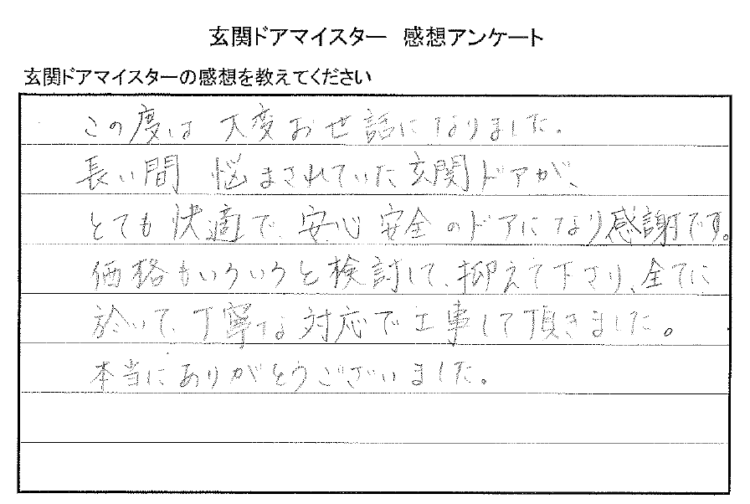 玄関ドアマイスター 感想アンケート
玄関ドアマイスターの感想を教えてください
この度は 大変お世話になりました.
長い間 悩まされていた玄関ドアが、
とても快適で、安心 安全のドアになり感謝です。
価格もいろいろと検討して、抑えて下さり、全てに
於いて、丁寧な対応で工事して頂きました。
本当にありがとうございました。